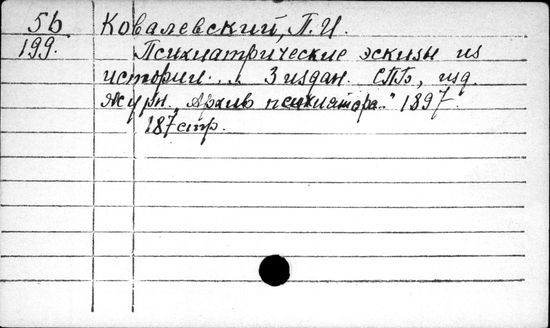 5б Ковалевский, П. И.
199. Психиатрические эскизы из
истории... 3 издан. СПБ, изд.
журн. "Архив психиатра.." 1897.
187 стр.